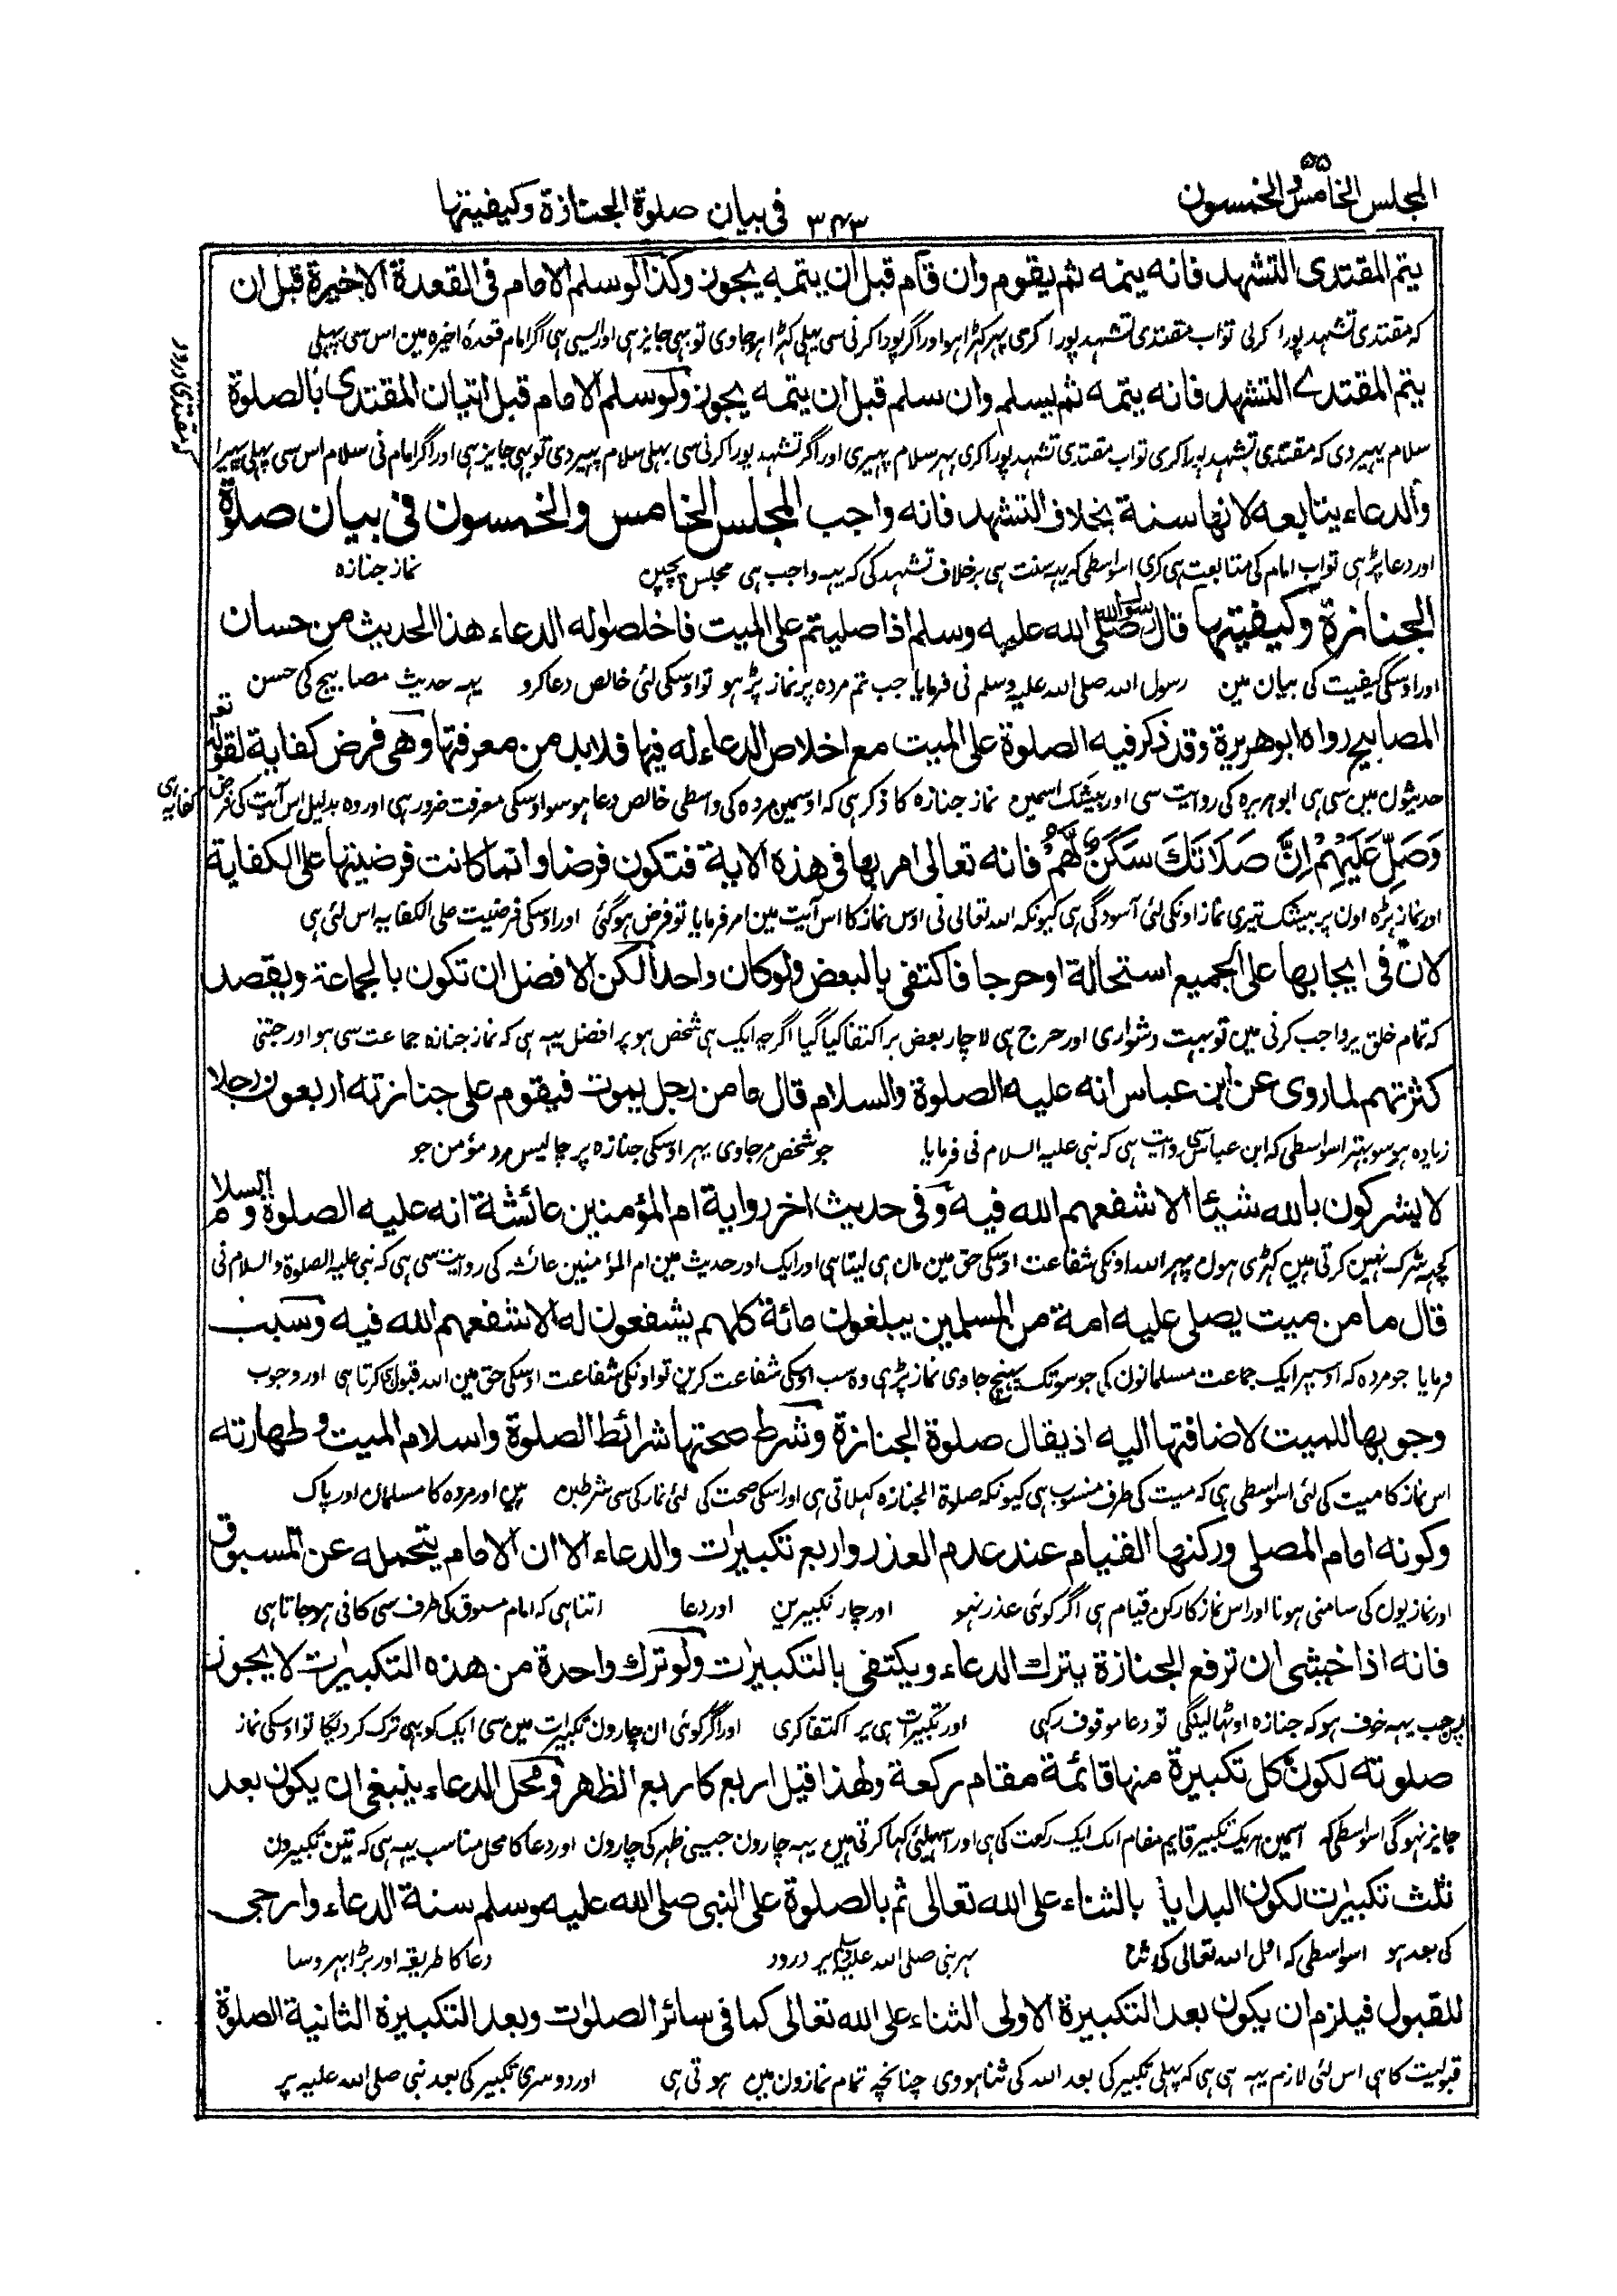 المجلس الخامس والخمسون ۵۵
۳۴۳
فی بیان صلوة الجنازة وکیفیتها
یتم المقتدی التشهد فانه یتمه ثم یقوم وان قام قبل ان یتمه یجوز وکذا لو سلم الامام فی القعدة الاخیرة قبل ان
که مقتدی تشهد پورا کرلی تو اب مقتدی تشهد پورا کری پهر کهڑا هو اور اگر پورا کرنی سی پهلی کهڑا هو جاوی تو بهی جایز هی اور ایسی هی اگر امام قعدۂ اخیره مین اس سی پهلی
یتم المقتدے التشهد فانه یتمه ثم یسلم وان سلم قبل ان یتمه یجوز ولو سلم الامام قبل اتیان المقتدی بالصلوة
سلام پهیر دی که مقتدی تشهد پورا کری تو اب مقتدی تشهد پورا کری پهر سلام پهیری اور اگر تشهد پورا کرنی سی پهلی سلام پهیر دی تو بهی جایز هی اور اگر امام نی سلام اس سی پهلی پهیرا
که مقتدی درود
والدعاء یتابعه لانها سنة بخلاف التشهد فانه واجب المجلس الخامس والخمسون فی بیان صلوة
اور دعا پڑهی تو اب امام کی متابعت هی کری اسواسطی که یهه سنت هی برخلاف تشهد کی که یهه واجب هی مجلس پچپن نماز جنازه
الجنازة وکیفیتها قال رسول الله صلی الله علیه وسلم اذا صلیتم علی المیت فاخلصوا له الدعاء هذا الحدیث من حسان
اور اوسکی کیفیت کی بیان مین رسول الله صلی الله علیه وسلم نی فرمایا جب تم مرده پر نماز پڑهو تو اوسکی لئی خالص دعا کرو یهه حدیث مصابیح کی حسن
المصابیح رواه ابوهریرة وقد ذکر فیه الصلوة علی المیت مع اخلاص الدعاء له فیها فلا بد من معرفتها وهی فرض کفایة لقوله تعه
حدیثول مین سی هی ابو هریره کی روایت سی اور بیشک اسمین نماز جنازه کا ذکر هی که اوسمین مرده کی واسطی خالص دعا هو سو اوسکی معرفت ضرور هی اور وه بدلیل اس آیت کی فرض کفایه هی
وَصَلِّ عَلَیْهِمْ اِنَّ صَلَاتَكَ سَكَنٌ لَّهُمْ فانه تعالی امر بها فی هذه الایة فتکون فرضا وانما کانت فرضیتها علی الکفایة
اور نماز پڑه اون پر بیشک تیری نماز اونکی لئی آسودگی هی کیونکه الله تعالی نی اوس نماز کا اس آیت مین امر فرمایا تو فرض هوگئی اور اوسکی فرضیت علی الکفایه اس لئی هی
لان فی ایجابها علی الجمیع استحالة او حرجا فاکتفی بالبعض ولو کان واحدا لکن الافضل ان تکون بالجماعة ویقصد
که تمام خلق پر واجب کرنی مین تو بهت دشواری اور حرج هی لاچار بعض پر اکتفا کیا گیا اگرچه ایک هی شخص هو پر افضل یهه هی که نماز جنازه جماعت سی هو اور جتنی
کثرتهم لما روی عن ابن عباس انه علیه الصلوة والسلام قال ما من رجل یموت فیقوم علی جنازته اربعون رجلا
زیاده هو سو بهتر اسواسطی که ابن عباس سی روایت هی که نبی علیه السلام نی فرمایا جو شخص مرجاوی پهر اوسکی جنازه پر چالیس مرد مؤمن جو
لا یشرکون بالله شیئا الا شفعهم الله فیه وفی حدیث اخر روایة ام المؤمنین عائشة انه علیه الصلوة والسلام
کچهه شرک نهین کرتی هین کهڑی هول پهر الله اونکی شفاعت اوسکی حق مین مان هی لیتا هی اور ایک اور حدیث مین ام المؤمنین عائشه کی روایت سی هی که نبی علیه الصلوة والسلام نی
قال ما من میت یصلی علیه امة من المسلمین یبلغون مائة کلهم یشفعون له الا شفعهم الله فیه وسبب
فرمایا جو مرده که اوسپر ایک جماعت مسلمانون کی جو سو تک پهنچ جاوی نماز پڑهی وه سب اوسکی شفاعت کرین تو اونکی شفاعت اوسکی حق مین الله قبول هی کرتا هی اور وجوب
وجوبها للمیت لاضافتها الیه اذ یقال صلوة الجنازة وشرط صحتها شرائط الصلوة واسلام المیت وطهارته
اس نماز کا میت کی لئی اسواسطی هی که میت کی طرف منسوب هی کیونکه صلوة الجنازه کهلاتی هی اور اسکی صحت کی لئی نماز کی سی شرطین هین اور مرده کا مسلمان اور پاک
وکونه امام المصلی ورکنها القیام عند عدم العذر واربع تکبیرات والدعاء الا ان الامام یتحمله عن المسبوق
اور نمازیول کی سامنی هونا اور اس نماز کا رکن قیام هی اگر کوئی عذر نهو اور چار تکبیرین اور دعا اتنا هی که امام مسبوق کی طرف سی کافی هو جاتا هی
فانه اذا خشی ان ترفع الجنازة یترك الدعاء ویکتفی بالتکبیرات ولو ترك واحدة من هذه التکبیرات لا یجوز
پس جب یهه خوف هو که جنازه اوٹها لینگی تو دعا موقوف رکهی اور تکبیرات هی پر اکتفا کری اور اگر کوئی ان چارون تکبیرات مین سی ایک کو بهی ترک کر دیگا تو اوسکی نماز
صلوته لکون کل تکبیرة منها قائمة مقام رکعة ولهذا قیل اربع کاربع الظهر ومحل الدعاء ینبغی ان یکون بعد
جایز نهوگی اسواسطی که اسمین هر یک تکبیر قایم مقام ایک ایک رکعت کی هی اور اسیلئی کها کرتی هین یهه چارون جیسی ظهر کی چارون اور دعا کا محل مناسب یهه هی که تین تکبیرون
ثلث تکبیرات لکون البدایة بالثناء علی الله تعالی ثم بالصلوة علی النبی صلی الله علیه وسلم سنة الدعاء وارجی
کی بعد هو اسواسطی که اول الله تعالی کی ثنا پهر نبی صلی الله علیه وسلم پر درود دعا کا طریقه اور بڑا بهروسا
للقبول فیلزم ان یکون بعد التکبیرة الاولی الثناء علی الله تعالی کما فی سائر الصلوات وبعد التکبیرة الثانیة الصلوة
قبولیت کا هی اس لئی لازم یهه هی هی که پهلی تکبیر کی بعد الله کی ثنا هووی چنانچه تمام نمازون مین هوتی هی اور دوسری تکبیر کی بعد نبی صلی الله علیه پر